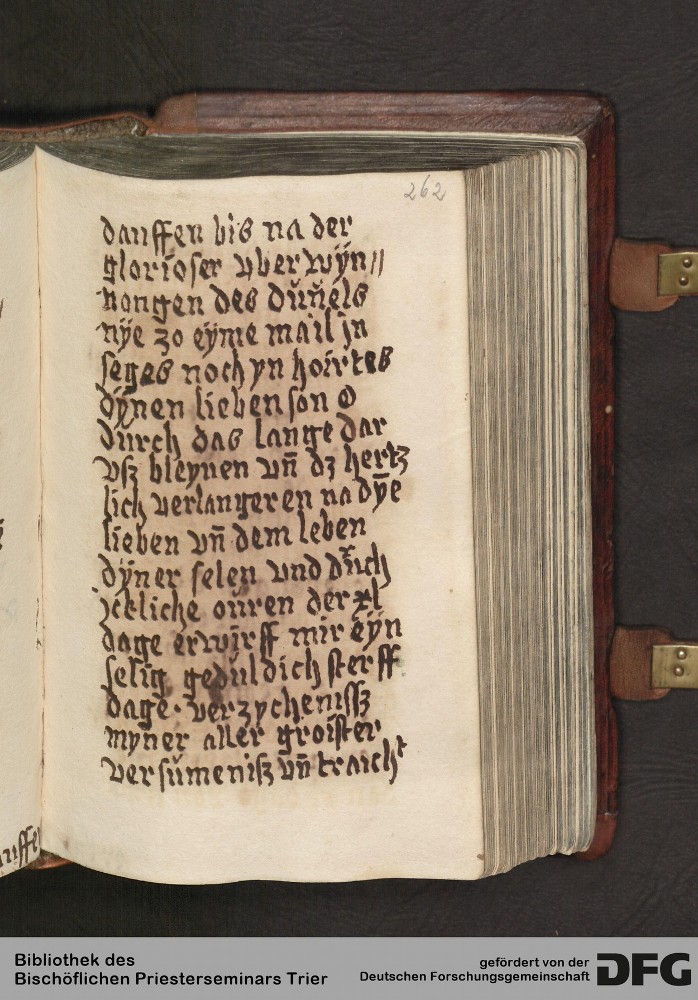 262
dauffen bis na der
glorioser vberwÿn//
nongen des dŭuels
nÿe zo eÿme mail jn
seges noch yn hoirtes
dÿnen lieben son O
durch das lange dar
vsz bleynen vn̄ dz hertz
lich verlangeren na dÿe
lieben vn̄ dem leben
dÿner selen vnd durch
jckliche oŭren der xl
dage erwirff mir eÿn
selig geduldich sterff
dage · verzychenissz
myner aller groister
versŭmenisz vn̄ traicht
uffe
Bibliothek des
Bischöflichen Priesterseminars Trier
gefördert von der
Deutschen Forschungsgemeinschaft
DFG